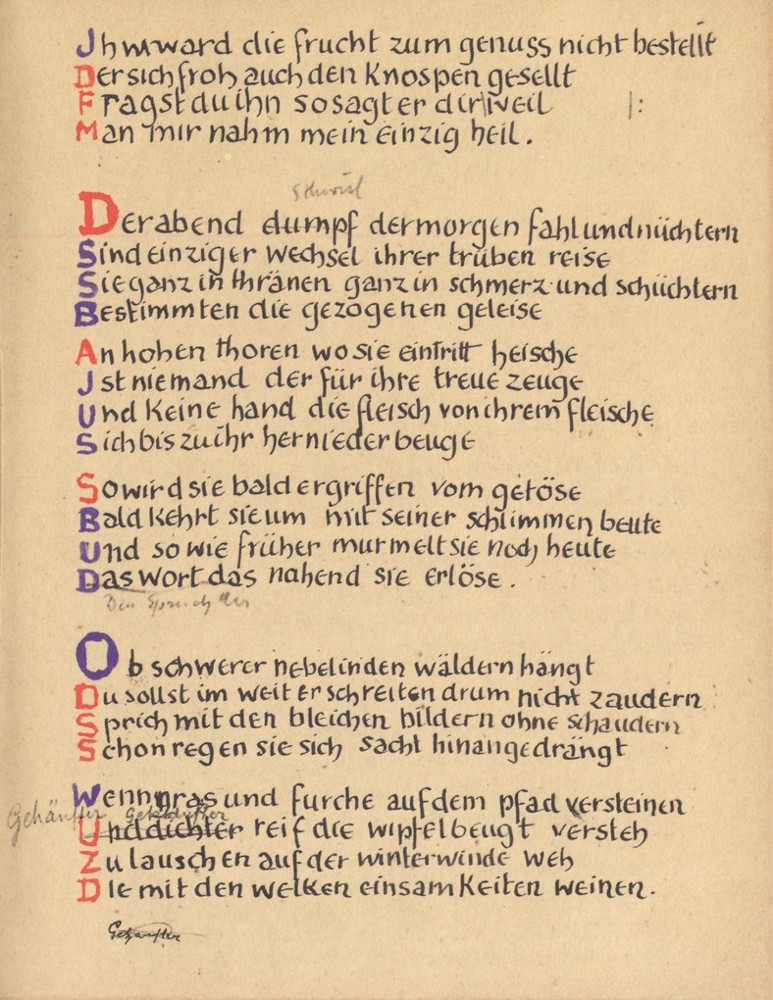 Jhm ward die frucht zum genuss nicht bestellt
Der sich froh auch den Knospen gesellt
Fragst du ihn so sagt er dir weil |:
Man mir nahm mein einzig heil.
Der abend dumpf der morgen fahl und nüchtern
Sind einziger wechsel ihrer trüben reise
Sie ganz in thränen ganz in schmerz und schüchtern
Bestimmten die gezogenen geleise
An hohen thoren wo sie eintritt heische
Jst niemand der für ihre treue zeuge
Und Keine hand die fleisch von ihrem fleische
Sich bis zu ihr herniederbeuge
So wird sie bald ergriffen vom getöse
Bald Kehrt sie um mit seiner schlimmen beute
Und so wie früher murmelt sie noch heute
Das wort das nahend sie erlöse.
Den Spruch der
Ob schwerer nebel in den wäldern hängt
Du sollst im weiterschreiten drum nicht zaudern
Sprich mit den bleichen bildern ohne schaudern
Schon regen sie sich sacht hinangedrängt
Wenn gras und furche auf dem pfad versteinen
Gehäufter
Und dichter reif die wipfel beugt versteh
Zu lauschen auf der winterwinde weh
Die mit den welken einsamKeiten weinen.
Gehäufter